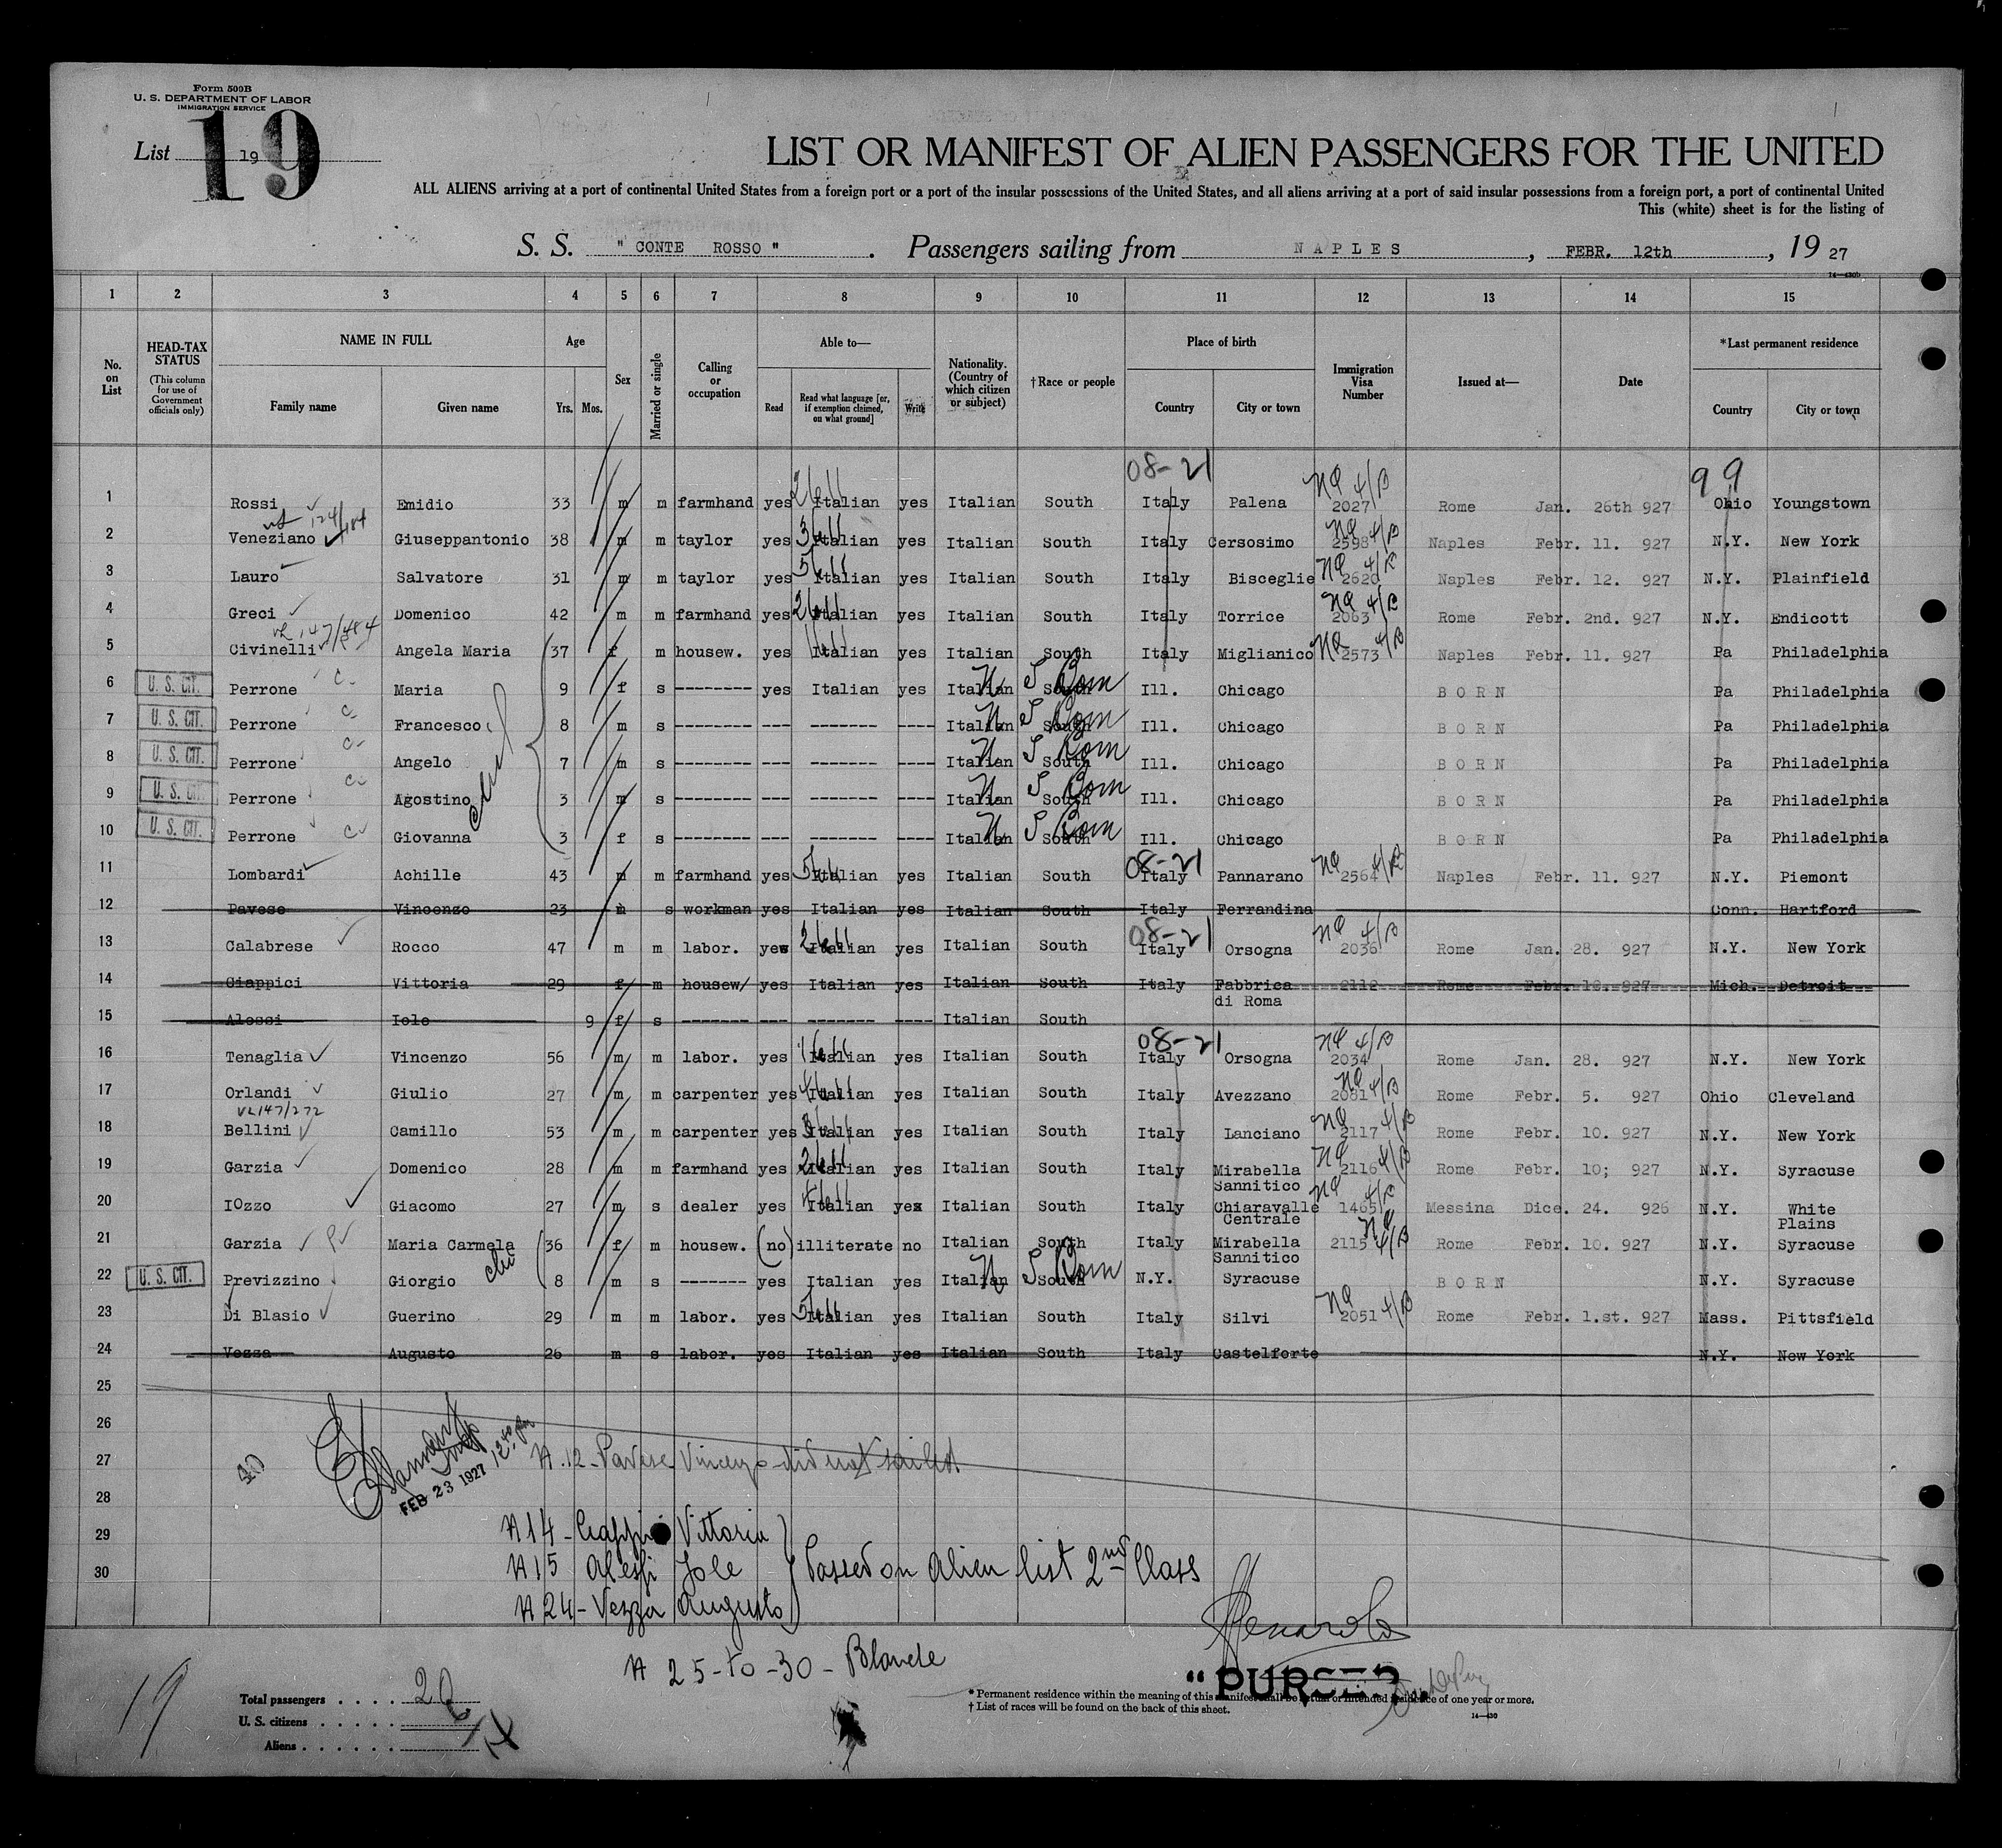 Form 500B
U. S. DEPARTMENT OF LABOR
IMMIGRATION SERVICE
List 19
19
LIST OR MANIFEST OF ALIEN PASSENGERS FOR THE UNITED
ALL ALIENS arriving at a port of continental United States from a foreign port or a port of the insular possessions of the United States, and all aliens arriving at a port of said insular possessions from a foreign port, a port of continental United
This (white) sheet is for the listing of
S. S. " CONTE ROSSO " . Passengers sailing from NAPLES , FEBR. 12th , 19 27
14—430b
1 2 3 4 5 6 7 8 9 10 11 12 13 14 15
No. on List
HEAD-TAX STATUS (This column for use of Government officials only)
NAME IN FULL
Family name Given name
Age
Yrs. Mos.
Sex
Married or single
Calling or occupation
Able to—
Read Read what language [or, if exemption claimed, on what ground] Write
Nationality. (Country of which citizen or subject)
†Race or people
Place of birth
Country City or town
Immigration Visa Number
Issued at—
Date
*Last permanent residence
Country City or town
08-21 NQ 4/B 99
1 Rossi Emidio 33 m m farmhand yes Italian yes Italian South Italy Palena 2027 Rome Jan. 26th 927 Ohio Youngstown
124/184 NQ 4/B
2 Veneziano Giuseppantonio 38 m m taylor yes Italian yes Italian South Italy Cersosimo 2598 Naples Febr. 11. 927 N.Y. New York
NQ 4/B
3 Lauro Salvatore 31 m m taylor yes Italian yes Italian South Italy Bisceglie 2620 Naples Febr. 12. 927 N.Y. Plainfield
NQ 4/B
4 Greci Domenico 42 m m farmhand yes Italian yes Italian South Italy Torrice 2063 Rome Febr. 2nd. 927 N.Y. Endicott
147/484 NQ 4/B
5 Civinelli Angela Maria 37 f m housew. yes Italian yes Italian South Italy Miglianico 2573 Naples Febr. 11. 927 Pa Philadelphia
6 U. S. CIT. Perrone Maria 9 f s -------- yes Italian yes Italian South U S Born Ill. Chicago BORN Pa Philadelphia
7 U. S. CIT. Perrone Francesco 8 m s -------- --- ------- ---- Italian South U S Born Ill. Chicago BORN Pa Philadelphia
8 U. S. CIT. Perrone Angelo 7 m s -------- --- ------- ---- Italian South U S Born Ill. Chicago BORN Pa Philadelphia
9 U. S. CIT. Perrone Agostino 3 m s -------- --- ------- ---- Italian South U S Born Ill. Chicago BORN Pa Philadelphia
10 U. S. CIT. Perrone Giovanna 3 f s -------- --- ------- ---- Italian South U S Born Ill. Chicago BORN Pa Philadelphia
08-21 NQ 4/B
11 Lombardi Achille 43 m m farmhand yes Italian yes Italian South Italy Pannarano 2564 Naples Febr. 11. 927 N.Y. Piemont
12 Pavese Vincenzo 23 m s workman yes Italian yes Italian South Italy Ferrandina Conn. Hartford
08-21 NQ 4/B
13 Calabrese Rocco 47 m m labor. yes Italian yes Italian South Italy Orsogna 2036 Rome Jan. 28. 927 N.Y. New York
14 Ciappici Vittoria 29 f m housew/ yes Italian yes Italian South Italy Fabbrica di Roma 2112 Rome Febr. 10. 927 Mich. Detroit
15 Alessi Iole 9 f s ------- --- ------- ---- Italian South
08-21 NQ 4/B
16 Tenaglia Vincenzo 56 m m labor. yes Italian yes Italian South Italy Orsogna 2034 Rome Jan. 28. 927 N.Y. New York
NQ 4/B
17 Orlandi Giulio 27 m m carpenter yes Italian yes Italian South Italy Avezzano 2081 Rome Febr. 5. 927 Ohio Cleveland
147/272 NQ 4/B
18 Bellini Camillo 53 m m carpenter yes Italian yes Italian South Italy Lanciano 2117 Rome Febr. 10. 927 N.Y. New York
NQ 4/B
19 Garzia Domenico 28 m m farmhand yes Italian yes Italian South Italy Mirabella Sannitico 2116 Rome Febr. 10; 927 N.Y. Syracuse
NQ 4/B
20 IOzzo Giacomo 27 m s dealer yes Italian yes Italian South Italy Chiaravalle Centrale 1465 Messina Dice. 24. 926 N.Y. White Plains
NQ 4/B
21 Garzia Maria Carmela 36 f m housew. (no) illiterate no Italian South Italy Mirabella Sannitico 2115 Rome Febr. 10. 927 N.Y. Syracuse
22 U. S. CIT. Previzzino Giorgio 8 m s ------- yes Italian yes Italian South U S Born N.Y. Syracuse BORN N.Y. Syracuse
NQ 4/B
23 Di Blasio Guerino 29 m m labor. yes Italian yes Italian South Italy Silvi 2051 Rome Febr. 1.st. 927 Mass. Pittsfield
24 Vezza Augusto 26 m s labor. yes Italian yes Italian South Italy Castelforte N.Y. New York
25
26
27 N.12-Pavese Vincenzo did not sailed
FEB 23 1927
28
29 N 14 - Ciappici Vittoria
30 N 15 Alessi Jole Passed on Alien list 2nd Class
N 24 - Vezza Augusto
N 25-to-30- Blande
19
"PURSER
Total passengers . . . . 20
U. S. citizens . . . . .
Aliens . . . . . . 14
* Permanent residence within the meaning of this manifest shall be actual or intended residence of one year or more.
† List of races will be found on the back of this sheet.
14—430